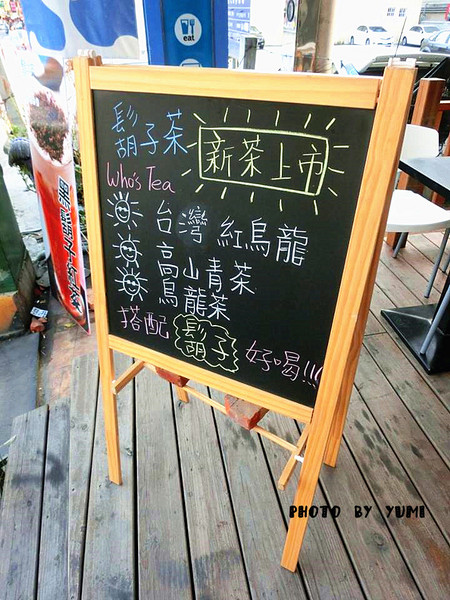 eat
鬍子茶
新茶上市
Who's Tea
台灣 紅烏龍
高山青茶
烏龍茶
搭配 鬍子 好喝!!!
PHOTO BY YUMI